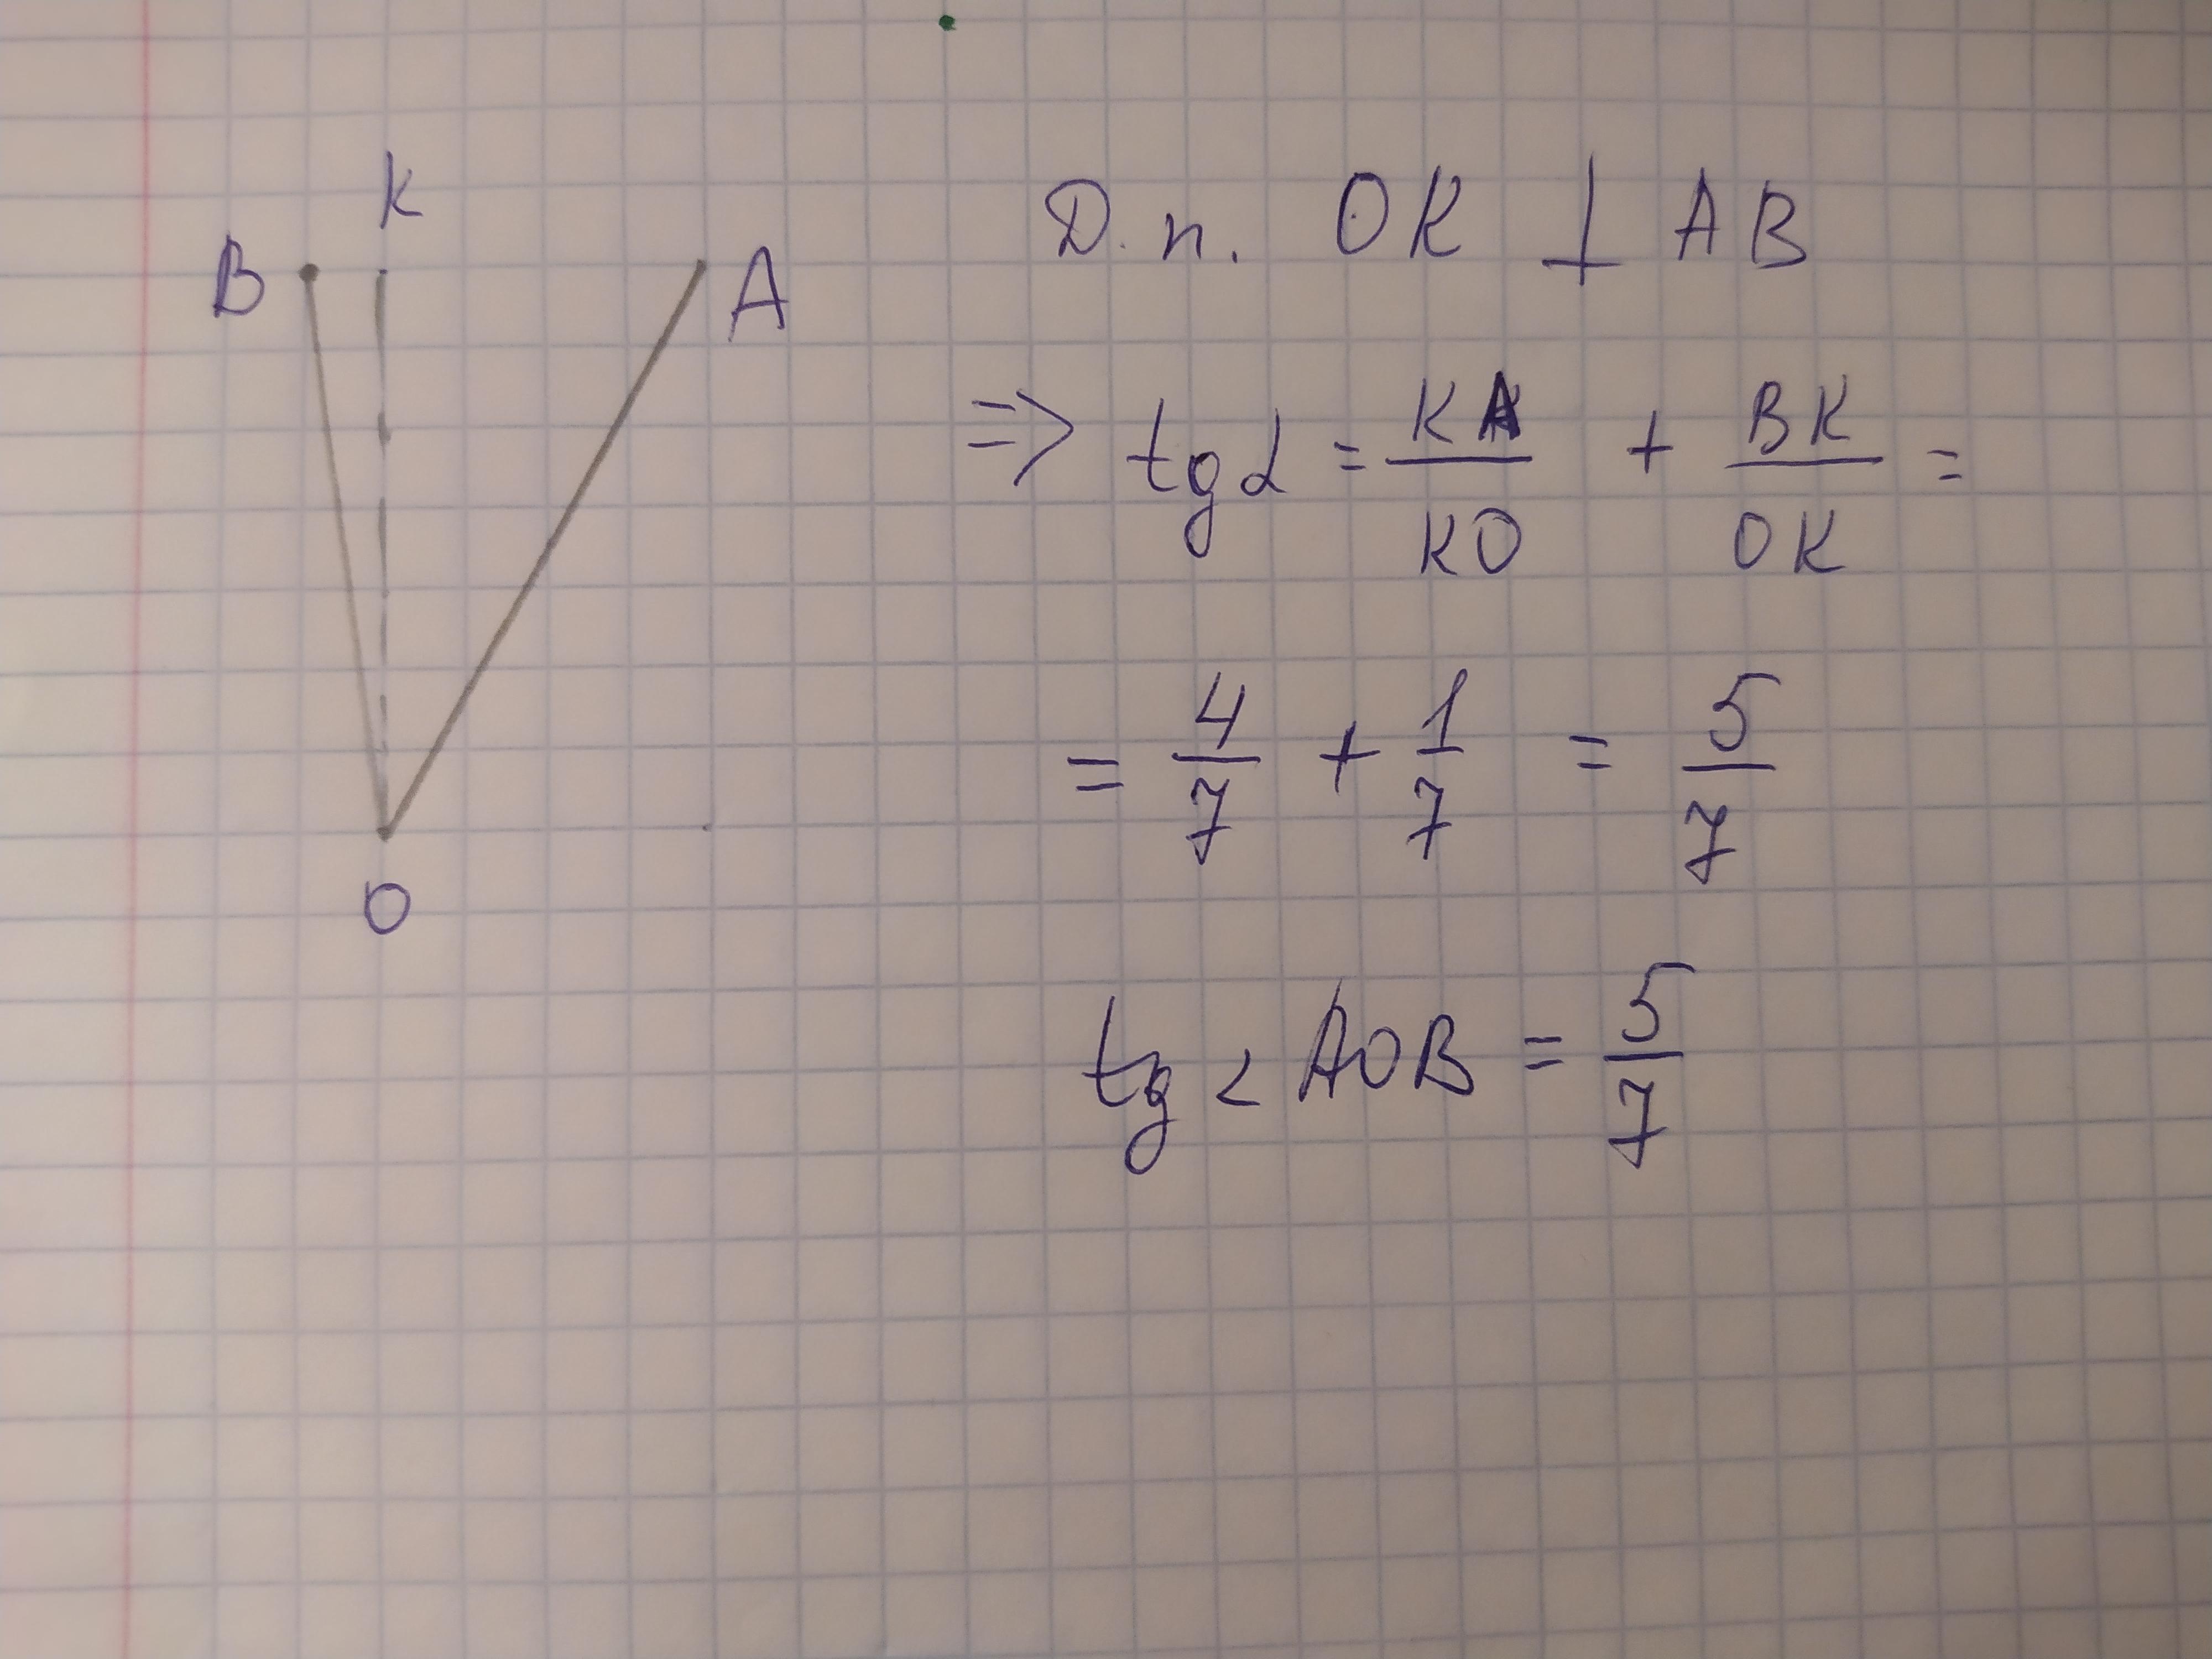 K
B
A
O
Д.п. OK ⊥ AB
⇒ tg α = KA/KO + BK/OK =
= 4/7 + 1/7 = 5/7
tg ∠ AOB = 5/7